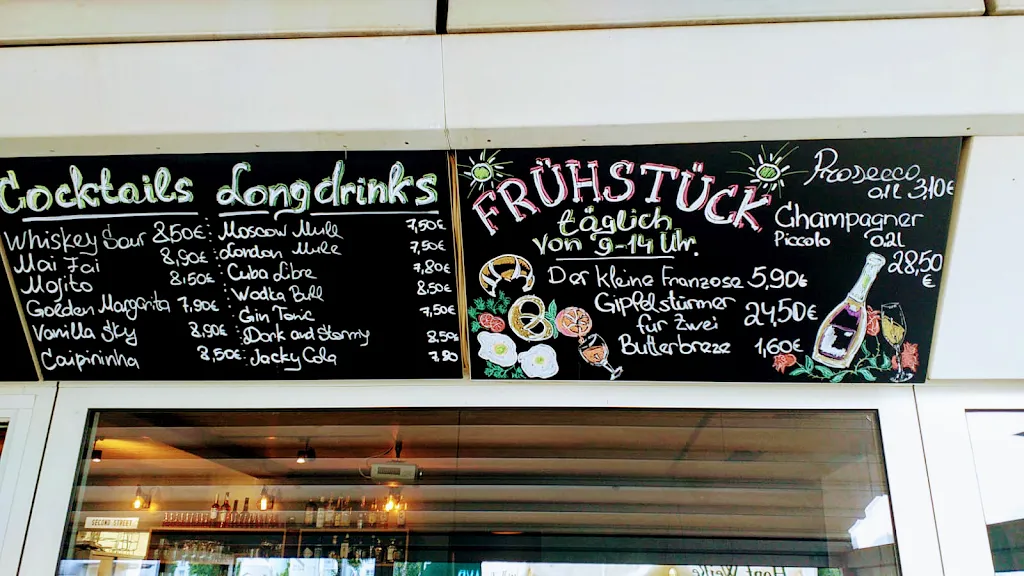 Cocktails
Whiskey Sour 8,50€
Mai Tai 8,90€
Mojito 8,50€
Golden Margarita 7,90€
Vanilla Sky 8,90€
Caipirinha 8,50€
Longdrinks
Moscow Mule 7,50€
London Mule 7,50€
Cuba Libre 7,80€
Wodka Bull 8,50€
Gin Tonic 7,50€
Dark and Stormy 8,50€
Jacky Cola 7,80
FRÜHSTÜCK
täglich
von 9-14 Uhr.
Der kleine Franzose 5,90€
Gipfelstürmer
für Zwei 24,50€
Butterbreze 1,60€
Prosecco
0,1l 3,10€
Champagner
Piccolo 0,2l
28,50
€
SECOND STREET